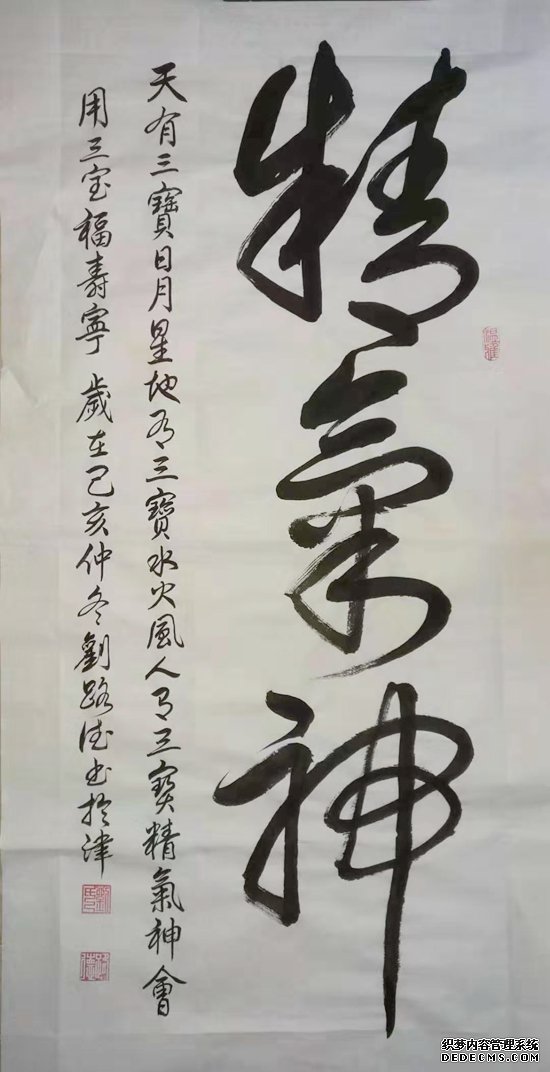 精氣神
天有三寶日月星地有三寶水火風人有三寶精氣神會
用三宝福壽寧 歲在己亥仲冬劉路德书於津
织梦内容管理系统
DEDECMS.COM